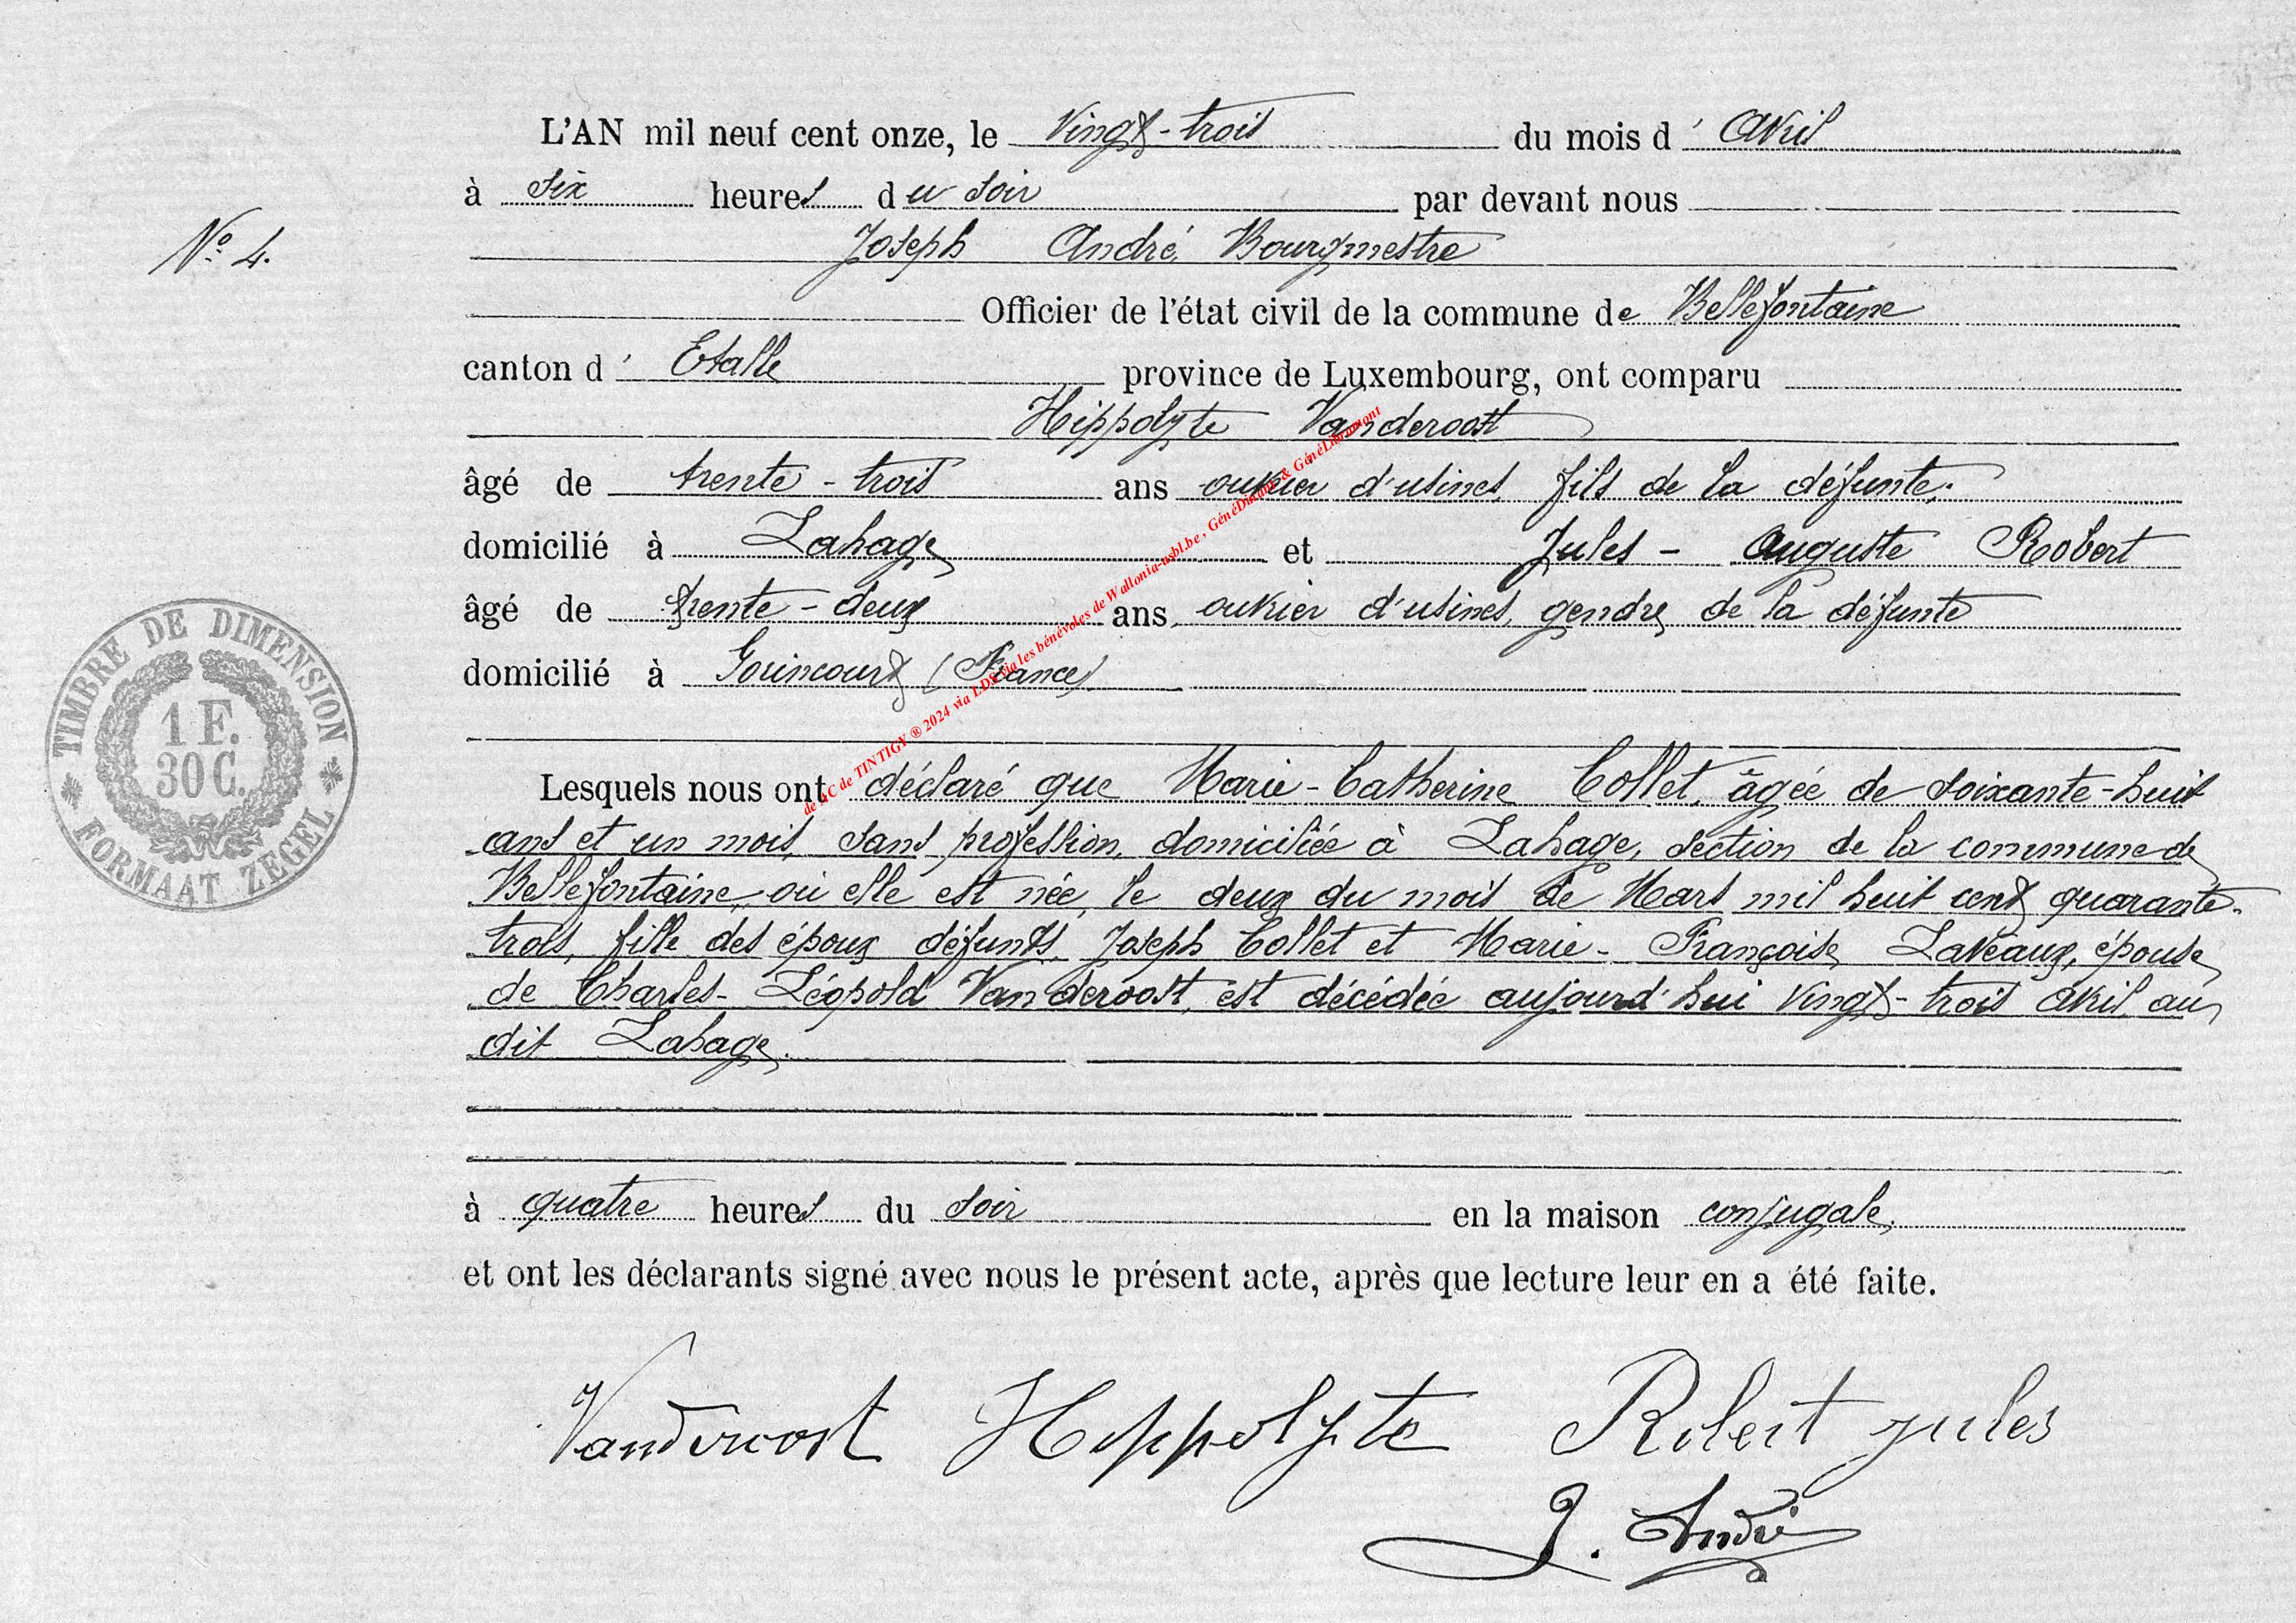 L'AN mil neuf cent onze, le vingt-trois du mois d'Avril
à six heures du soir par devant nous
N° 4.
Joseph André, Bourgmestre
Officier de l'état civil de la commune de Bellefontaine
canton d'Etalle province de Luxembourg, ont comparu
Hippolyte Vanderoost
âgé de trente-trois ans ouvrier d'usines, fils de la défunte,
domicilié à Lahage et Jules-Auguste Robert
âgé de trente-deux ans, ouvrier d'usines, gendre de la défunte
domicilié à (France)
Lesquels nous ont déclaré que Marie-Catherine Collet, âgée de soixante-huit
ans et un mois, sans profession, domiciliée à Lahage, section de la commune de
Bellefontaine, où elle est née, le deux du mois de Mars mil huit cent quarante-
trois, fille des époux défunts, Joseph Collet et Marie-Françoise Laveaux, épouse
de Charles-Léopold Vanderoost, est décédée aujourd'hui vingt-trois avril, au
dit Lahage,
à quatre heures du soir en la maison conjugale,
et ont les déclarants signé avec nous le présent acte, après que lecture leur en a été faite.
Vanderoost Hippolyte Robert jules
J. André
TIMBRE DE DIMENSION
1 F.
30 C.
FORMAAT ZEGEL
de AC de TINTIGY ® 2024 via LDS via les bénévoles de Wallonia-asbl.be, GénéDinant & GénéLibramont